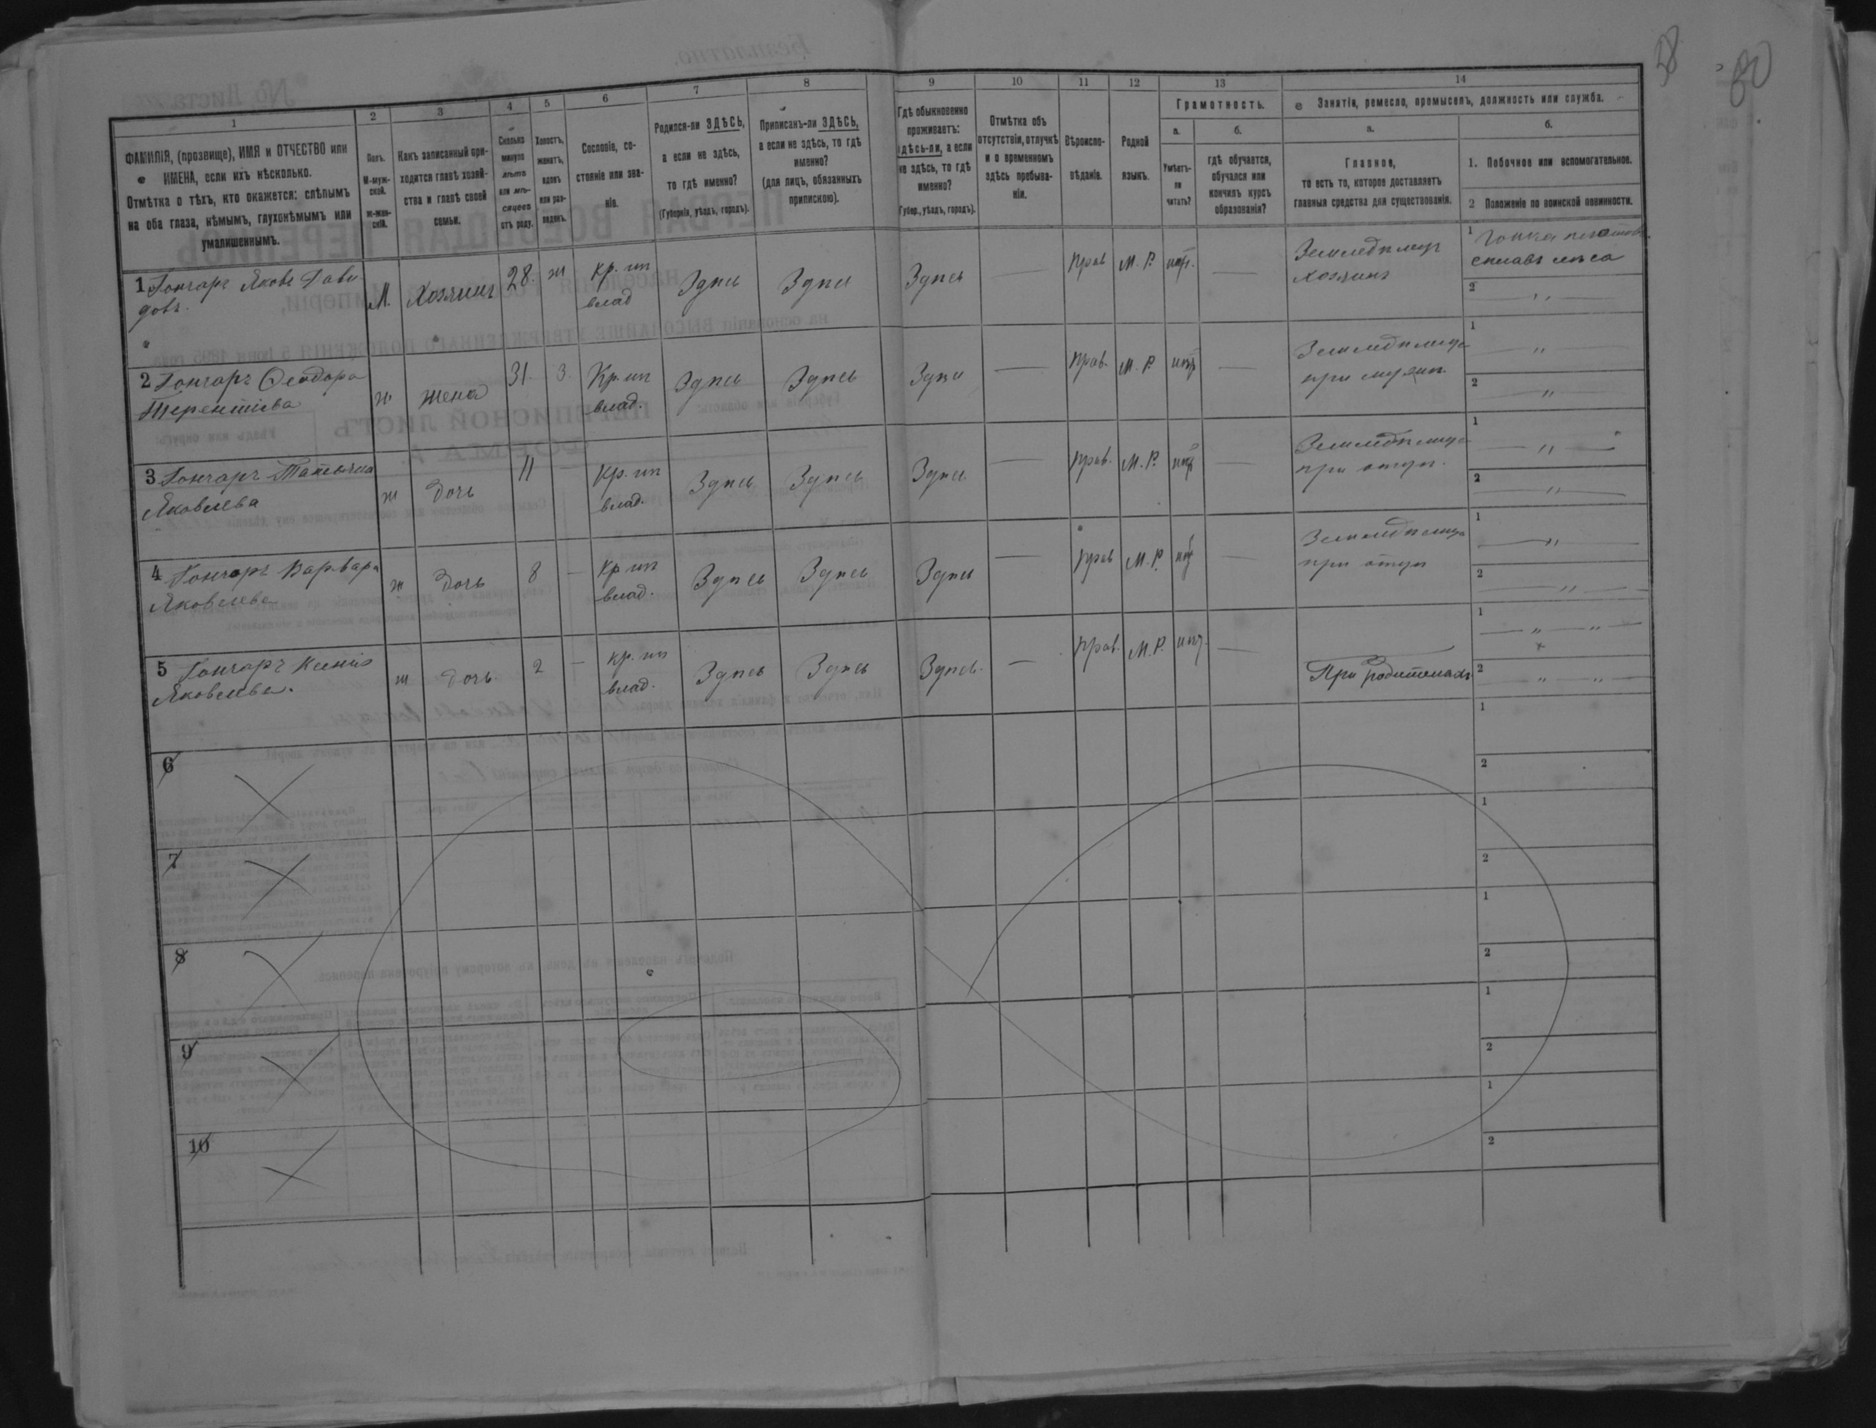 58
80
1
2
3
4
5
6
7
8
9
10
11
12
13
14
ФАМИЛІЯ, (прозвище), ИМЯ и ОТЧЕСТВО или
ИМЕНА, если ихъ нѣсколько.
Отмѣтка о тѣхъ, кто окажется: слѣпымъ
на оба глаза, нѣмымъ, глухонѣмымъ или
умалишеннымъ.
Полъ.
М-муж-
ской.
Ж-жен-
скій.
Какъ записанный при-
ходится главѣ хозяй-
ства и главѣ своей
семьи.
Сколько
минуло
лѣтъ
или мѣ-
сяцевъ
отъ роду.
Холостъ,
женатъ,
вдовъ
или раз-
веденъ.
Сословіе, со-
стояніе или зва-
ніе.
Родился-ли ЗДѢСЬ,
а если не здѣсь,
то гдѣ именно?
(Губернія, уѣздъ, городъ).
Приписанъ-ли ЗДѢСЬ,
а если не здѣсь, то гдѣ
именно?
(для лицъ, обязанныхъ
припискою).
Гдѣ обыкновенно
проживаетъ:
здѣсь-ли, а если
не здѣсь, то гдѣ
именно?
(Губер., уѣздъ, городъ).
Отмѣтка объ
отсутствіи, отлучкѣ
и о временномъ
здѣсь пребыва-
ніи.
Вѣроиспо-
вѣданіе.
Родной
языкъ.
Грамотность.
а.
Умѣетъ-
ли
читать?
б.
гдѣ обучается,
обучался или
кончилъ курсъ
образованія?
Занятія, ремесло, промыселъ, должность или служба.
а.
Главное,
то есть то, которое доставляетъ
главныя средства для существованія.
б.
1. Побочное или вспомогательное.
2 Положеніе по воинской повинности.
1 Гончаръ Яковъ Дави-
довъ.
М. Хозяинъ 28. ж Кр. ип влад Здѣсь Здѣсь Здѣсь — Прав М. Р. нѣт. — Земледѣлецъ хозяинъ
1 сплавъ лѣса
2 „
2 Гончаръ Ѳеодора
Терентіева
ж жена 31. З. Кр. ип влад. Здѣсь Здѣсь Здѣсь — Прав. М. Р. нѣт — при мужѣ
1 „
2 „
3 Гончаръ Татьяна
Яковлева
ж дочь 11 — Кр. ип влад. Здѣсь Здѣсь Здѣсь — Прав. М. Р. нѣт — при отцѣ.
1 „
2 „
4 Гончаръ Варвара
Яковлева
ж дочь 8 — Кр ип влад. Здѣсь Здѣсь Здѣсь — Прав М. Р. нѣт — при отцѣ
1 „
2 „
5 Гончаръ Ксенія
Яковлева.
ж дочь 2 — Кр. ип влад. Здѣсь Здѣсь Здѣсь. — Прав. М. Р. нѣт. — При родителяхъ
1 „ „
2 „ „
6
1
2
7
1
2
8
1
2
9
1
2
10
1
2